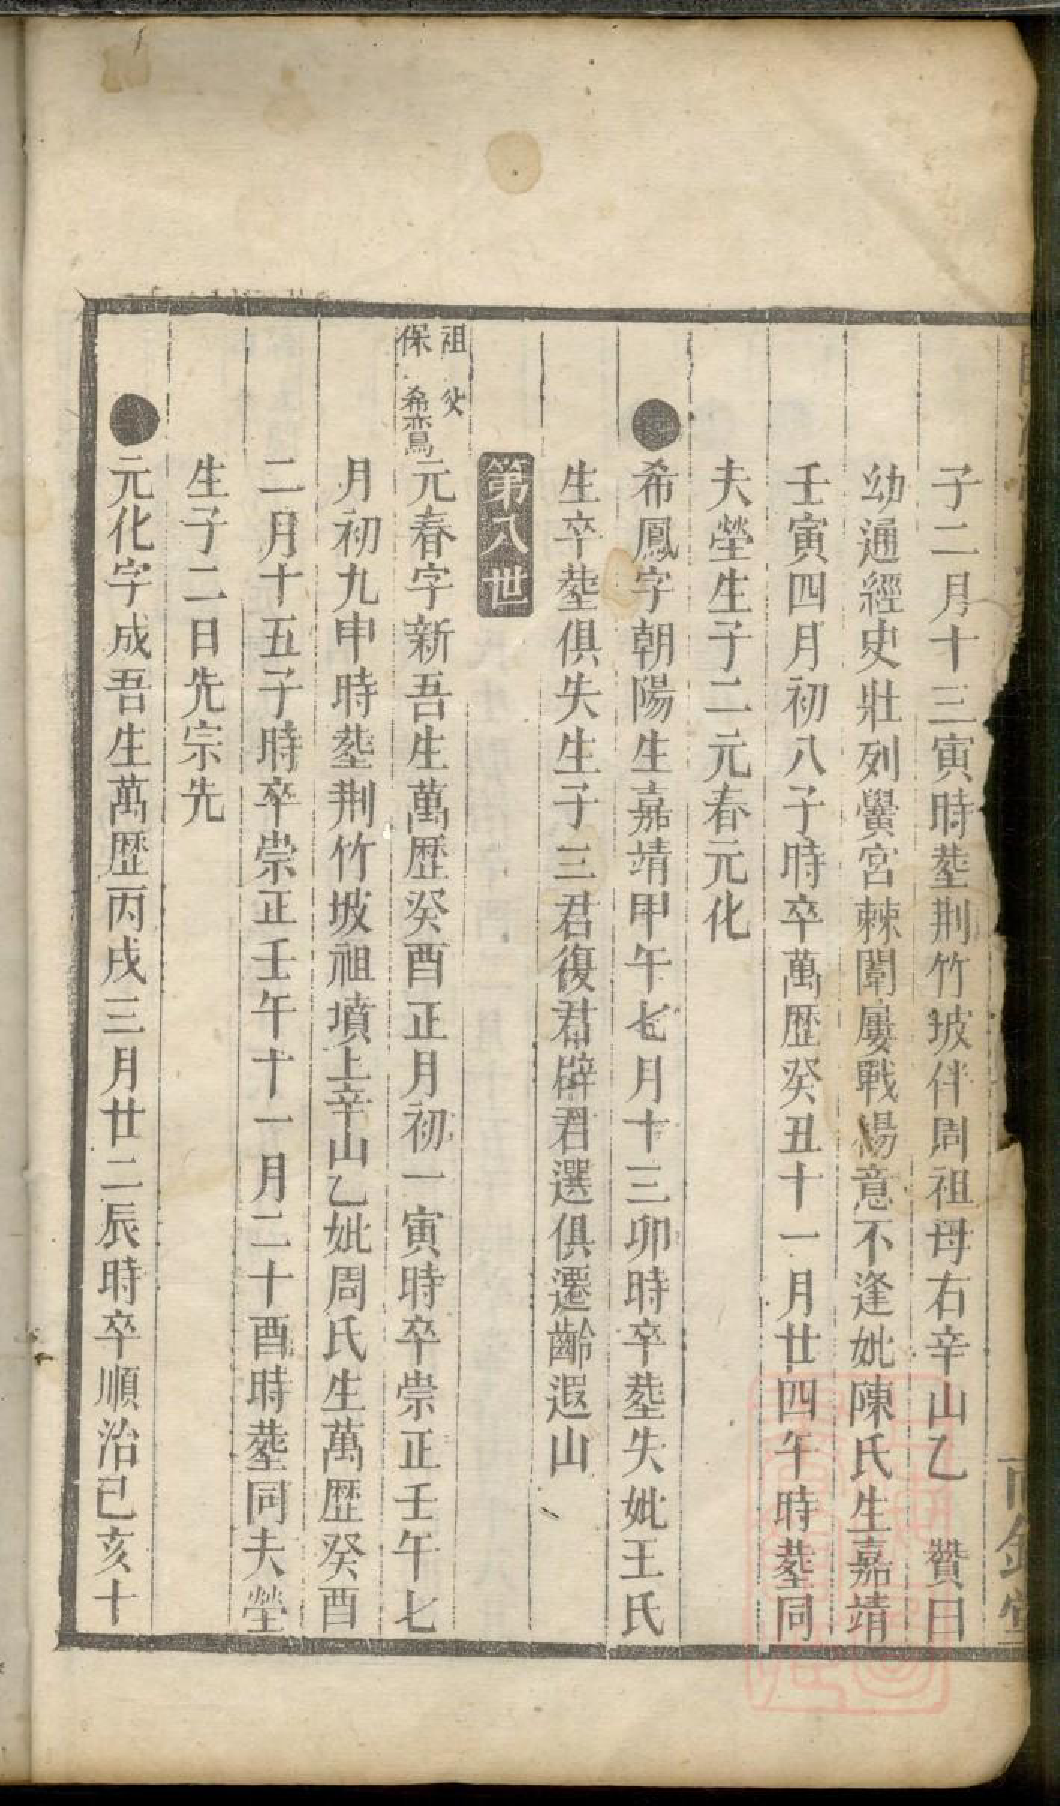 子二月十三寅時塟荆竹坡伴周祖母右辛山乙　贊曰
幼通經史壯列黌宮棘闈屢戰楊意不逢妣陳氏生嘉靖
壬寅四月初八子時卒萬歴癸丑十一月廿四午時塟同
夫塋生子二元春元化
●希鳳字朝陽生嘉靖甲午七月十三卯時卒塟失妣王氏
生卒塟俱失生子三君復君辟君選俱遷齡遐山
第八世
祖保
父希鸞
元春字新吾生萬歴癸酉正月初一寅時卒崇正壬午七
月初九申時塟荆竹坡祖墳上辛山乙妣周氏生萬歴癸酉
二月十五子時卒崇正壬午十一月二十酉時塟同夫塋
生子二日先宗先
●元化字成吾生萬歴丙戌三月廿二辰時卒順治己亥十